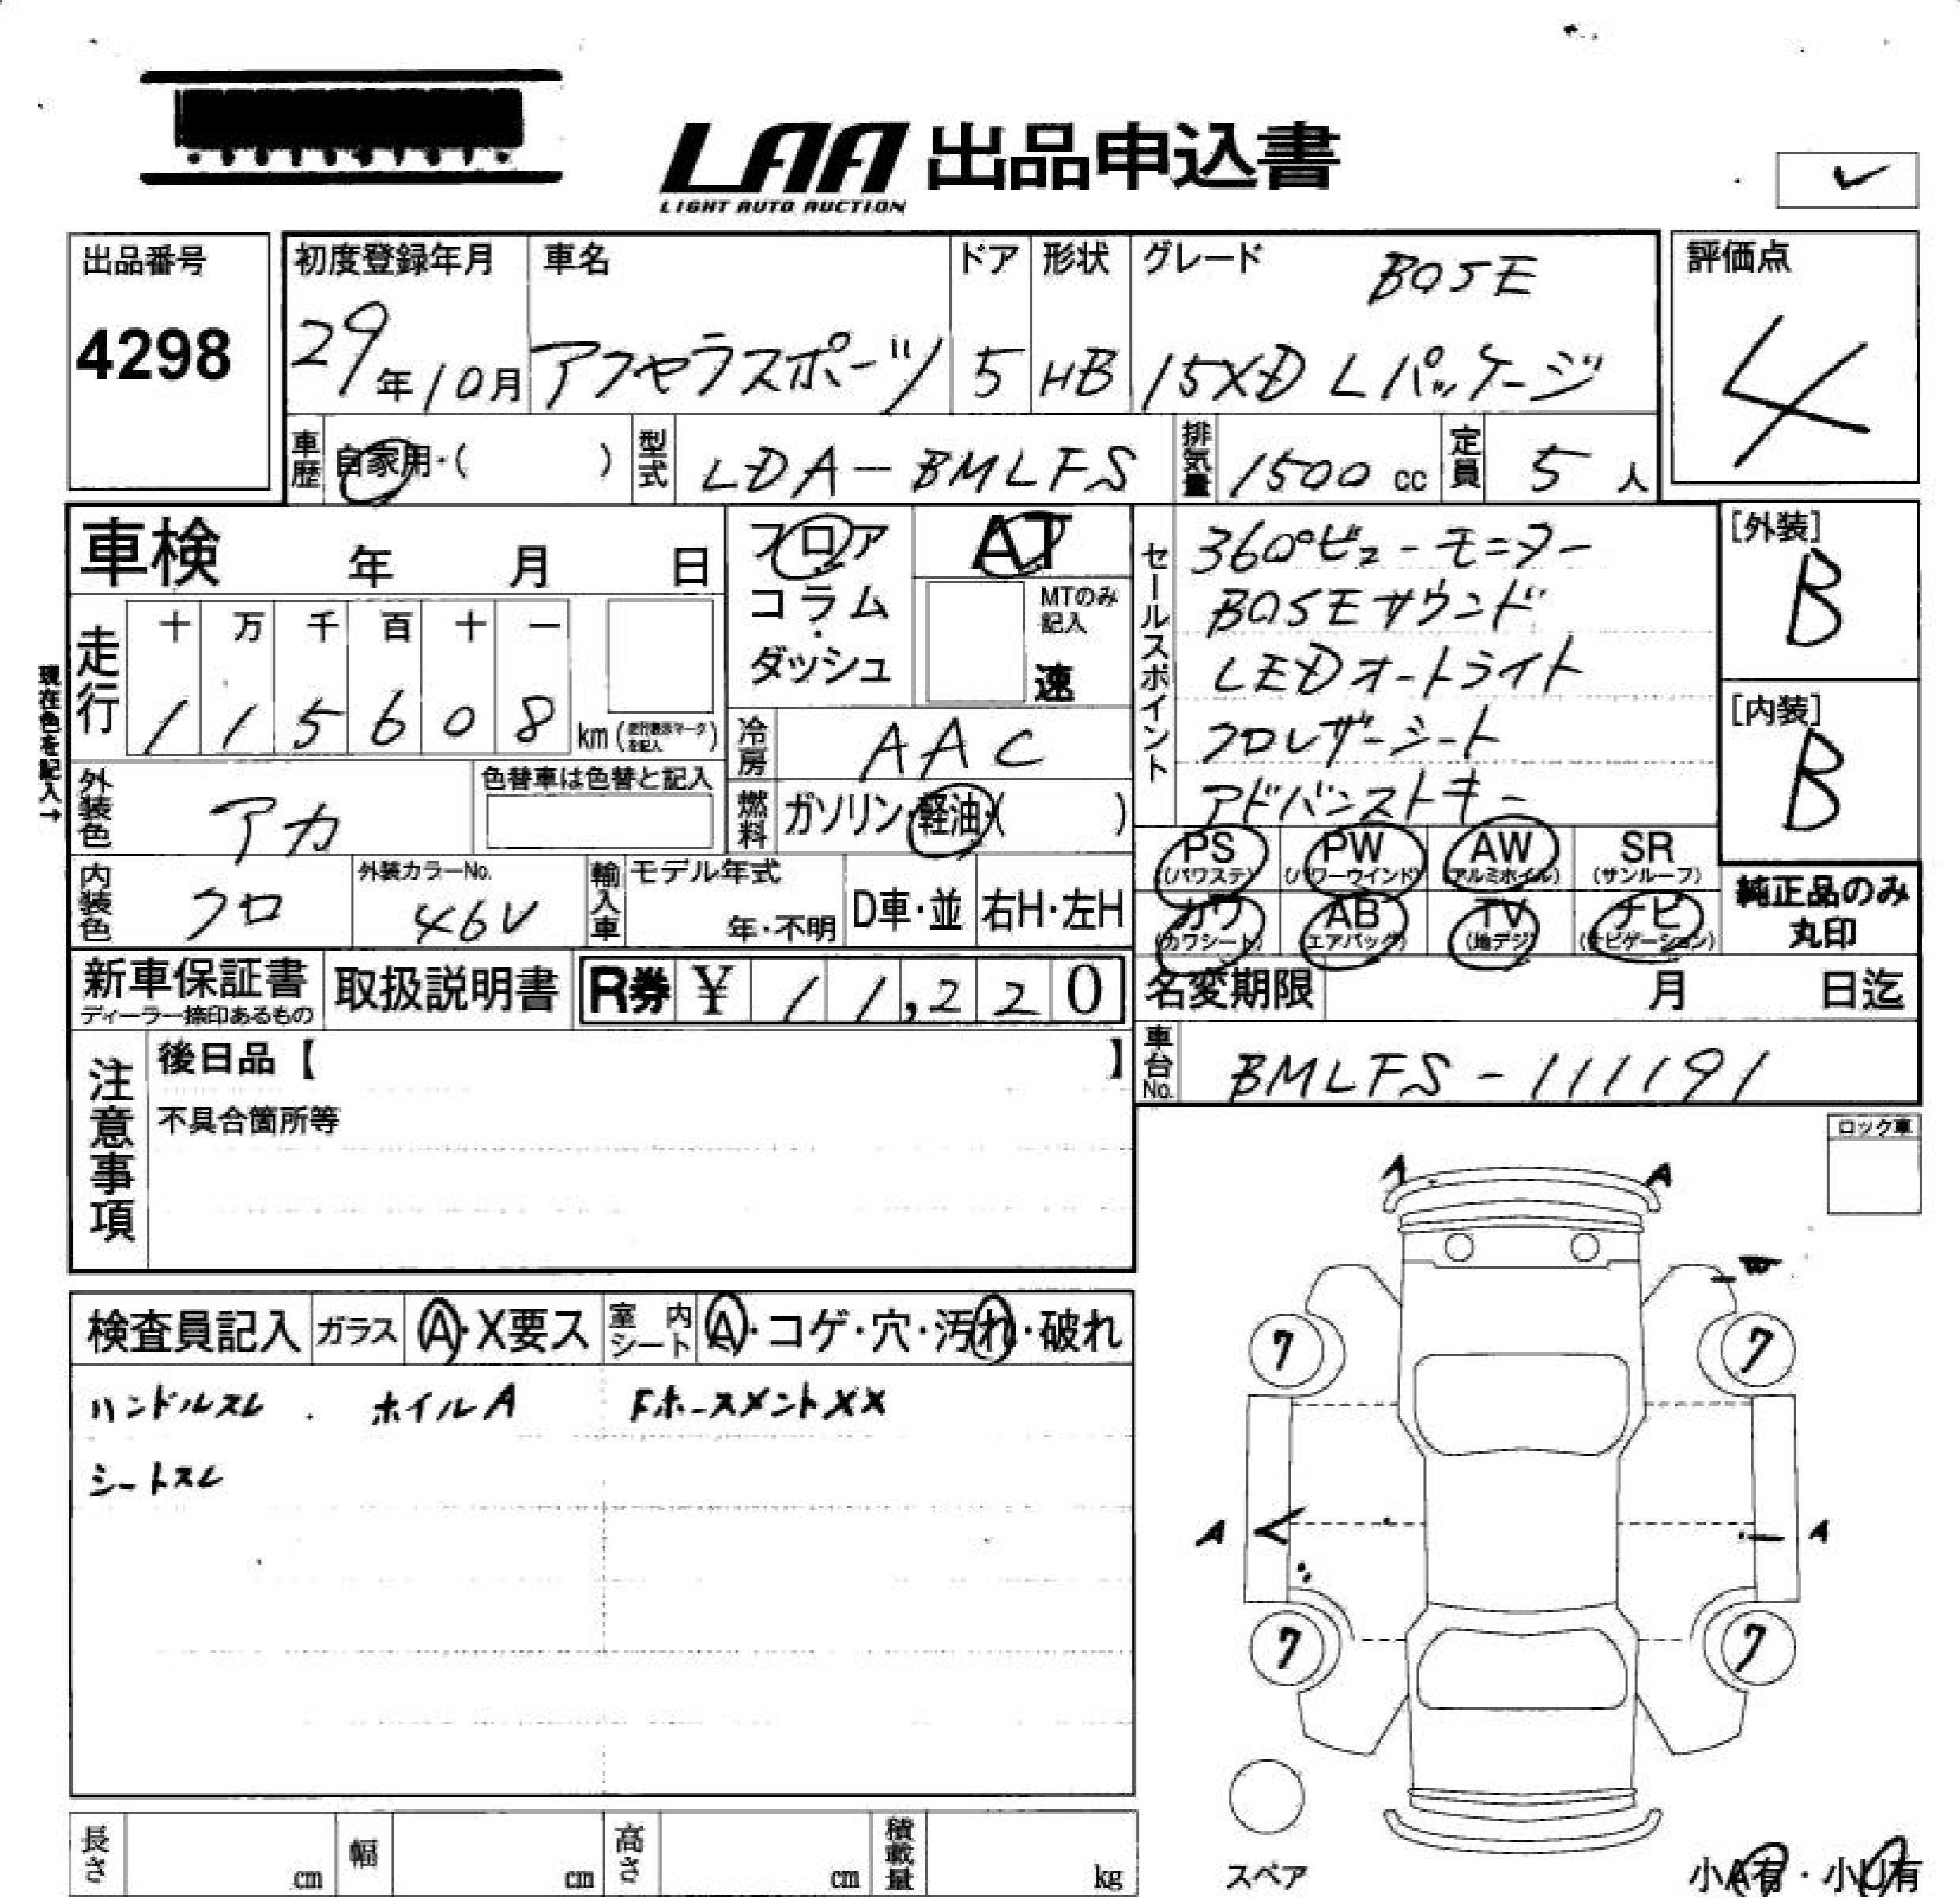 LAA 出品申込書
LIGHT AUTO AUCTION
✓
出品番号
4298
初度登録年月
29年10月
車名
アクセラスポーツ
ドア
5
形状
HB
グレード
BOSE
15XD Lパッケージ
評価点
4
車歴 自家用・( )
型式 LDA-BMLFS
排気量 1500 cc
定員 5 人
車検 年 月 日
フロア
コラム
・
ダッシュ
AT
MTのみ
記入
速
セールスポイント
360°ビューモニター
BOSEサウンド
LEDオートライト
クロレザーシート
アドバンストキー
[外装]
B
[内装]
B
現在色を記入→
走行
十 万 千 百 十 一
1 1 5 6 0 8 km
冷房 AAC
外装色 アカ
色替車は色替と記入
燃料 ガソリン・軽油・( )
内装色 クロ
外装カラーNo.
46V
輸入車
モデル年式
年・不明
D車・並
右H・左H
PS (パワステ)
PW (パワーウインド)
AW (アルミホイル)
SR (サンルーフ)
カワ (カワシート)
AB (エアバッグ)
TV (地デジ)
ナビ (ナビゲーション)
純正品のみ
丸印
新車保証書
ディーラー捺印あるもの
取扱説明書
R券 ¥ 11,220
名変期限 月 日迄
車台No. BMLFS-111191
注意事項
後日品【 】
不具合箇所等
ロック車
検査員記入
ガラス A・X要ス
室内シート A・コゲ・穴・汚れ・破れ
ハンドルスレ . ホイルA Fホースメント××
シートスレ
A A
7 7
A A
7 7
スペア
小A有・小U有
長さ cm
幅 cm
高さ cm
積載量 kg